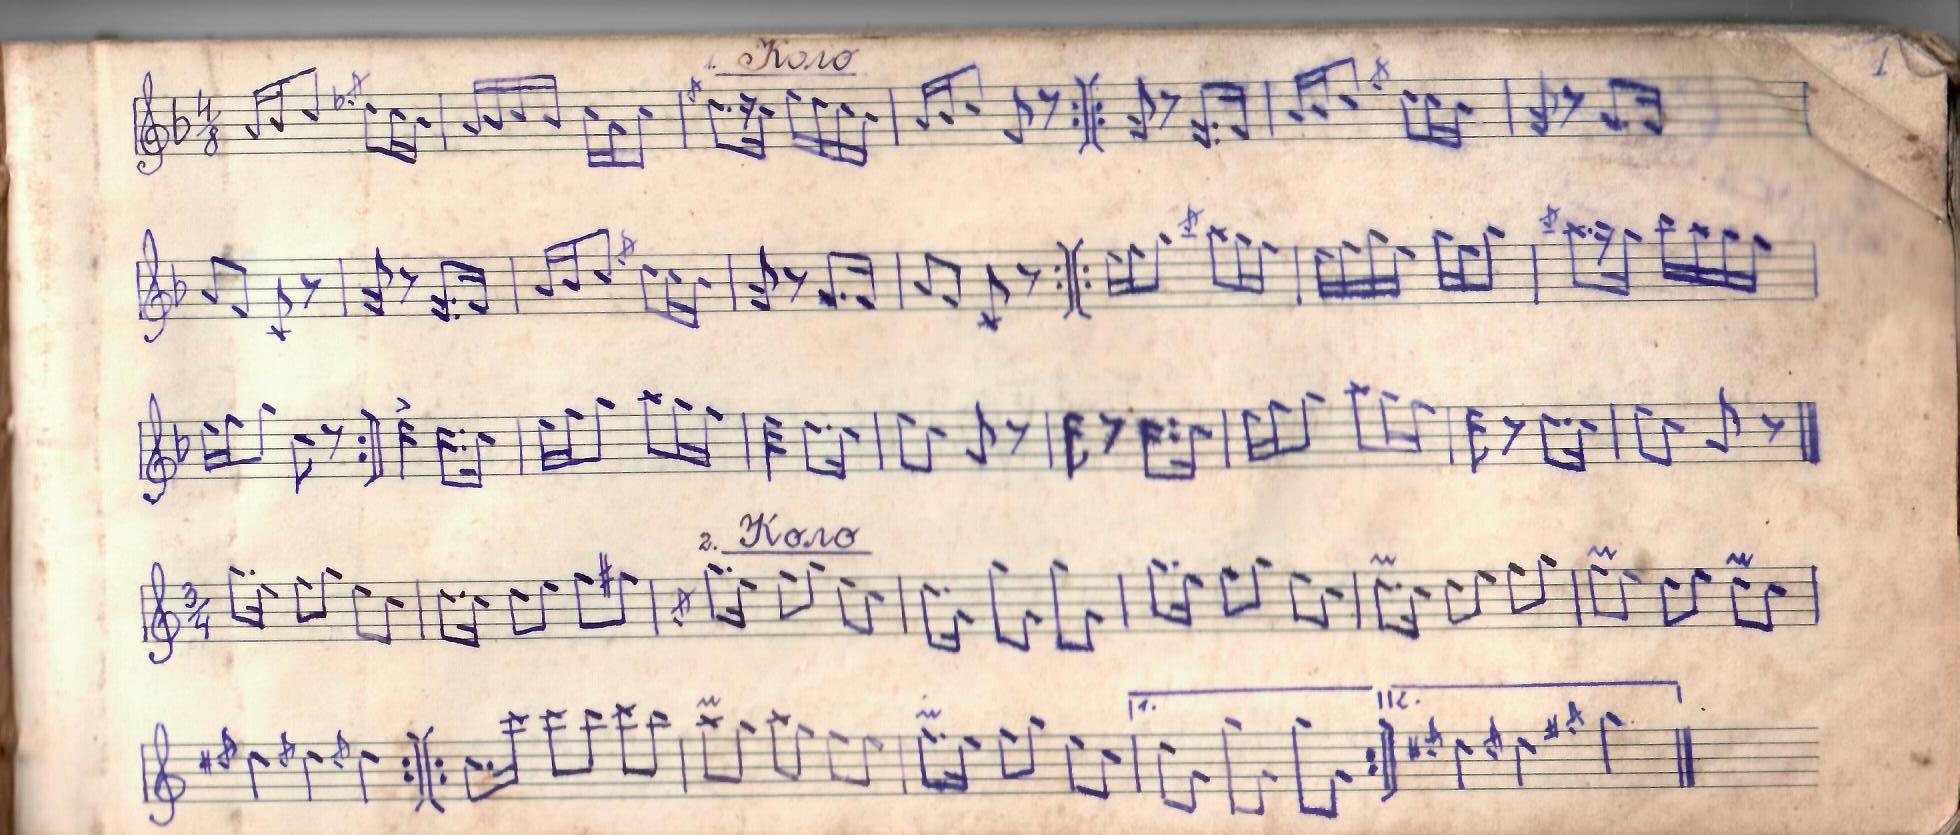 1. Коло
1
4/8
2. Коло
3/4
1.
2.